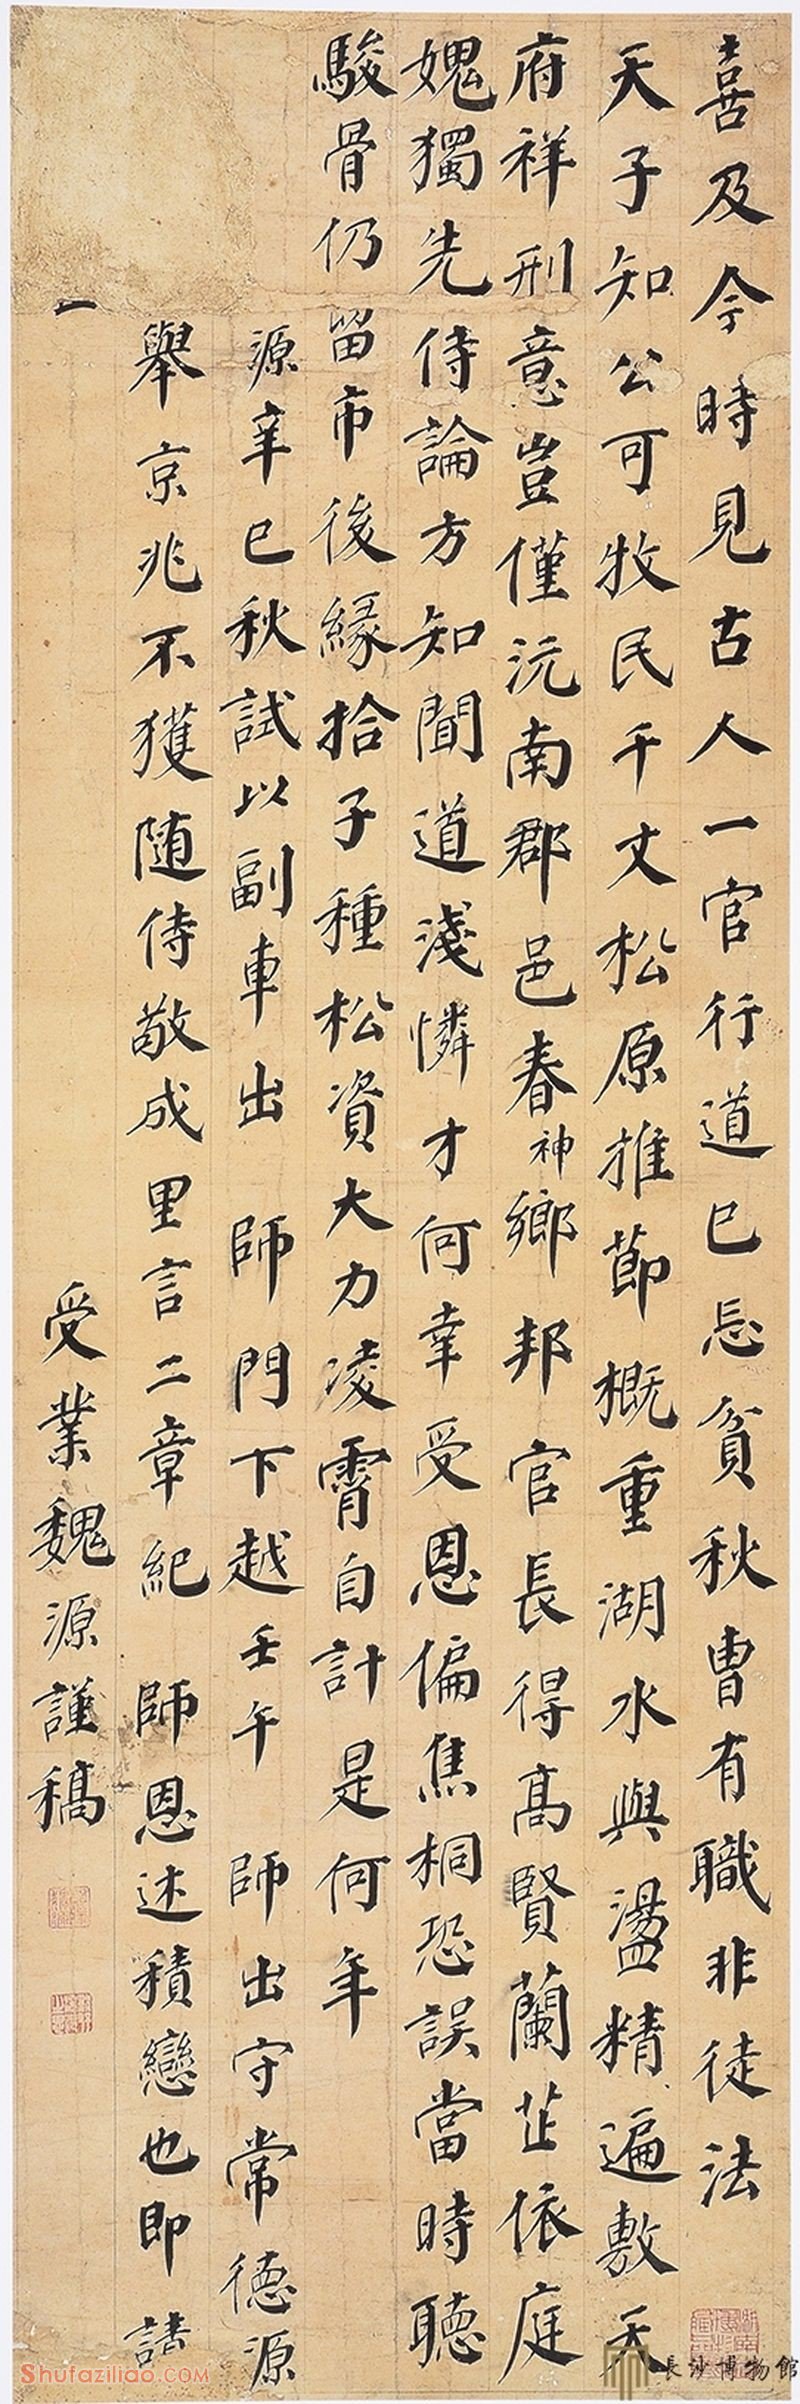 喜及今時見古人一官行道已忘貧秋曹有職非徒法
天子知公可牧民千丈松原推節概重湖水與盪精遍敷天
府祥刑意豈僅沅南郡邑春神鄉邦官長得高賢蘭芷依庭
媿獨先侍論方知聞道淺憐才何幸受恩偏焦桐恐誤當時聽
駿骨仍留市後緣拾子種松資大力凌霄自計是何年
源辛巳秋試以副車出師門下越壬午師出守常德源
舉京兆不獲随侍敬成里言二章紀師恩述積戀也即請
一
受業魏源謹稿
長沙博物館
Shufaziliao.com